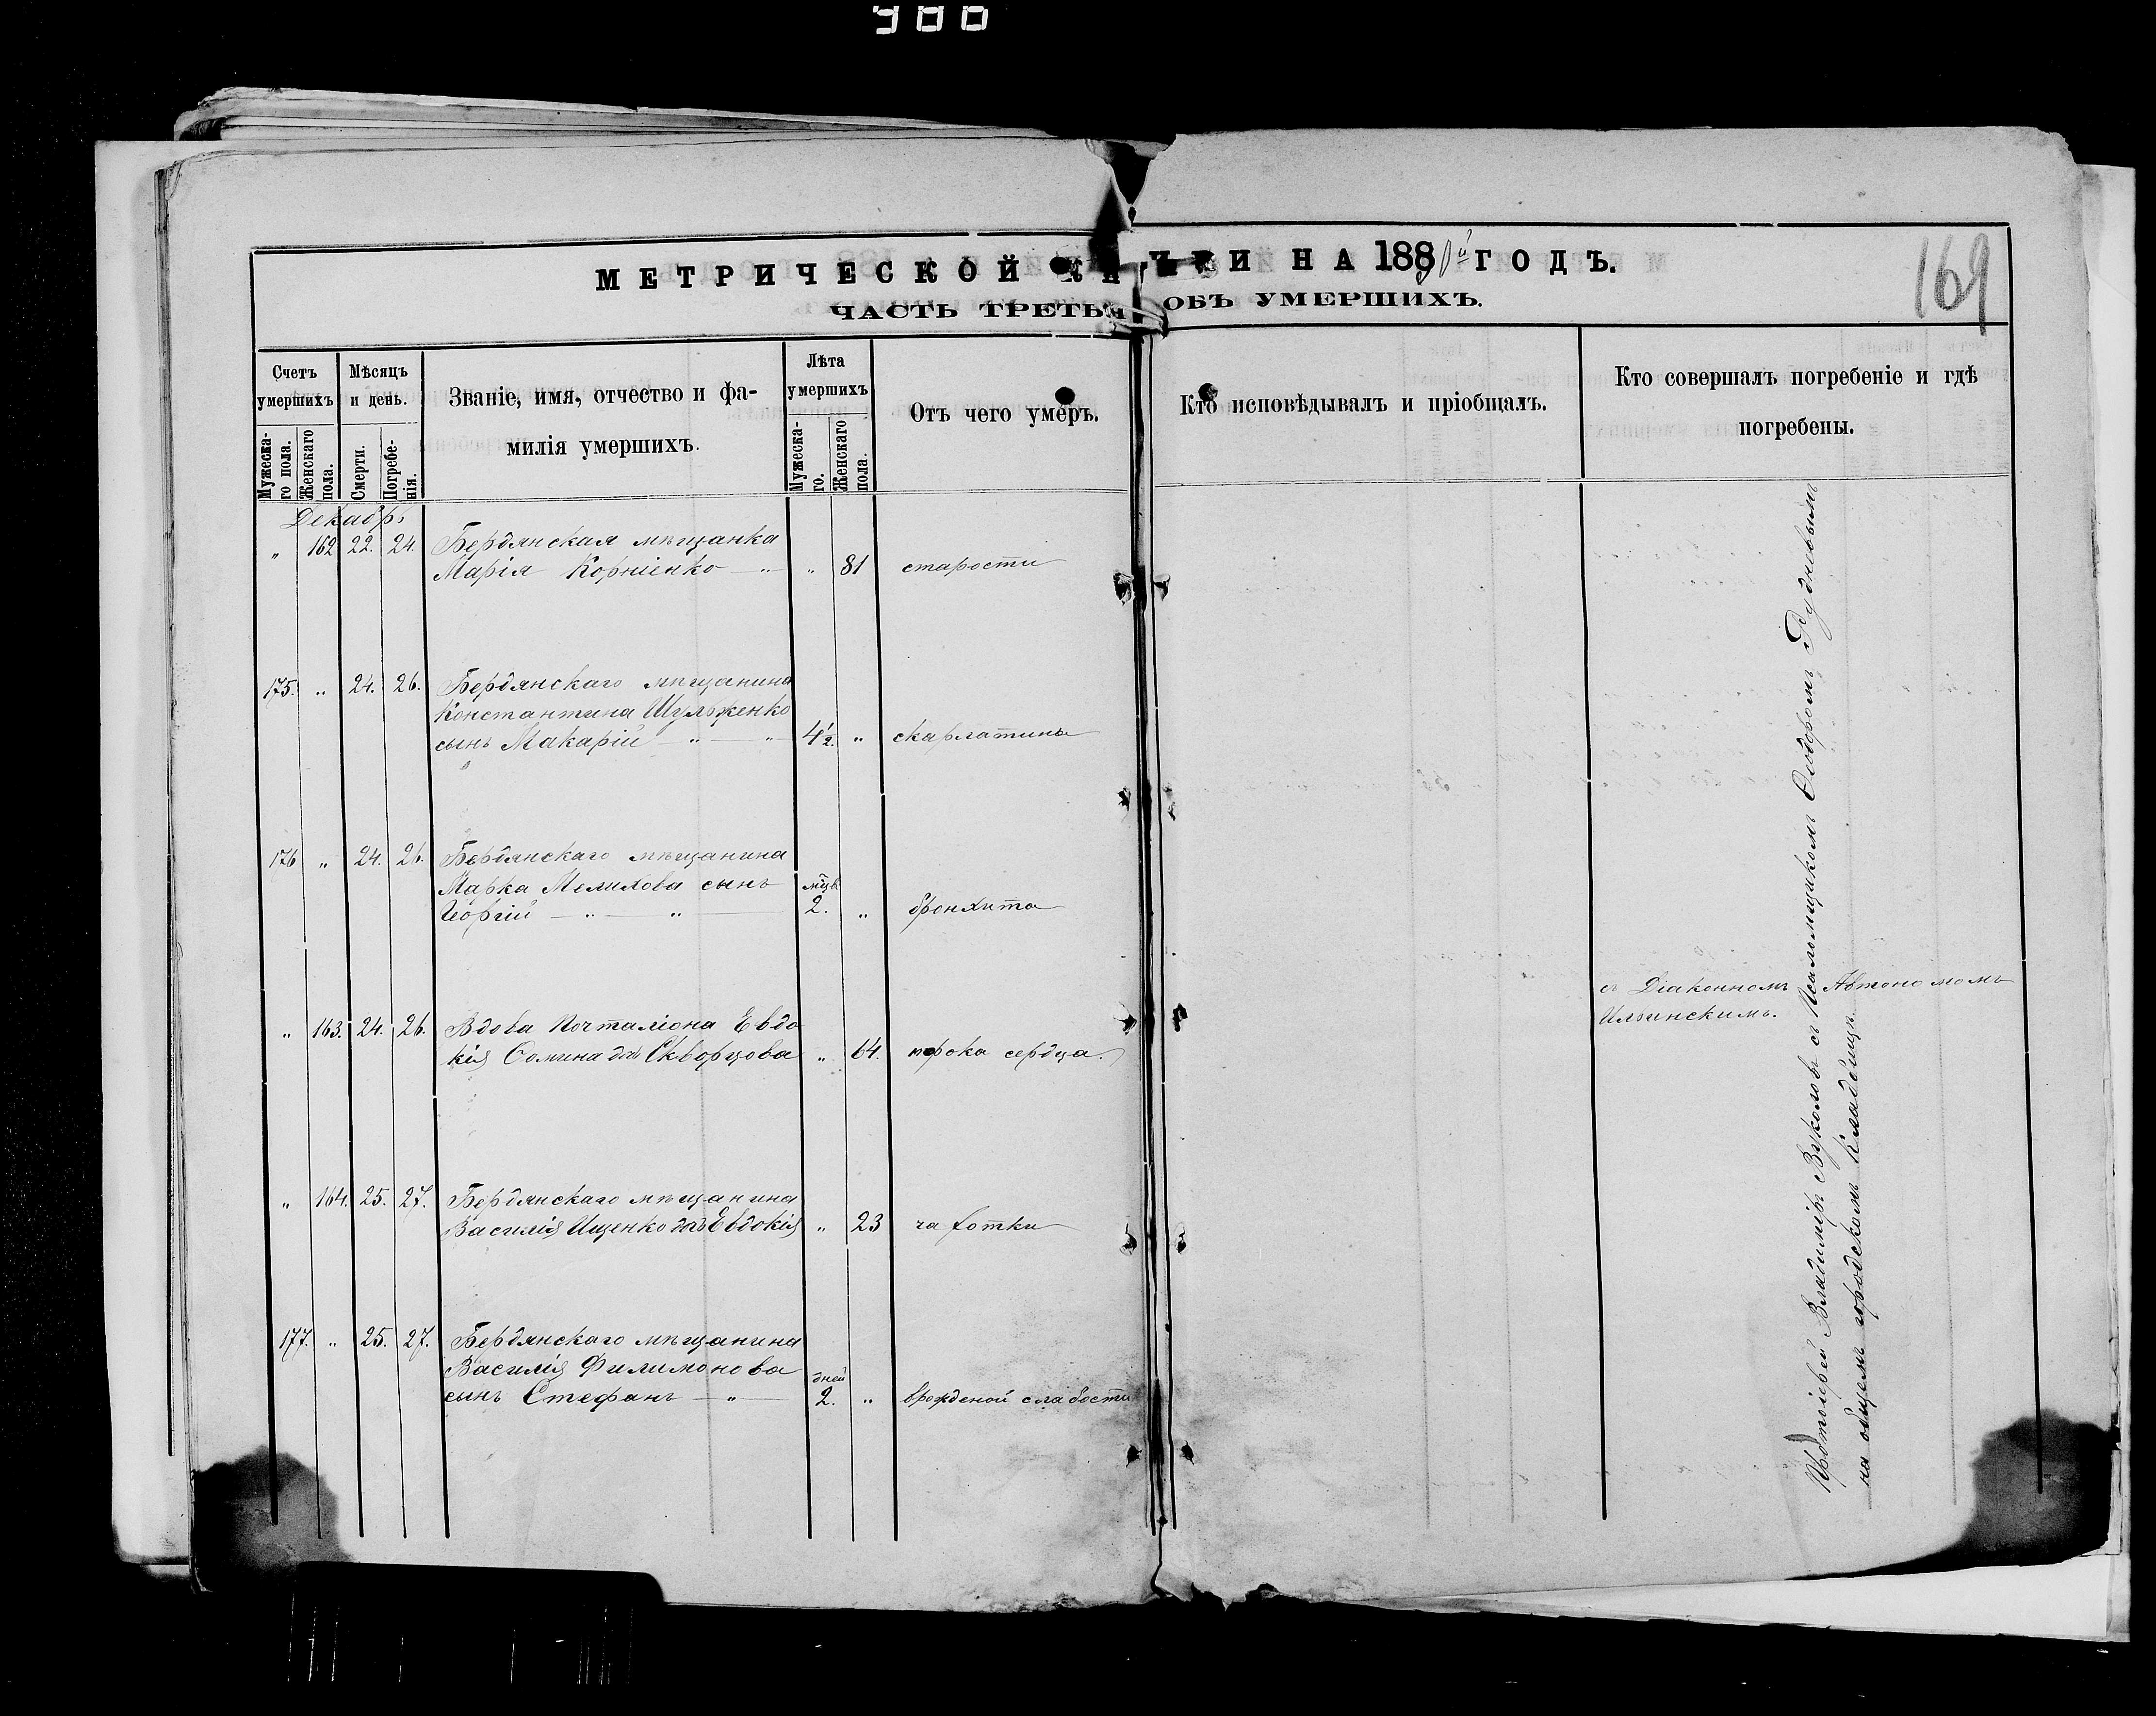 900
МЕТРИЧЕСКОЙ КНИГИ НА 188 й ГОДЪ.
169
ЧАСТЬ ТРЕТЬЯ ОБЪ УМЕРШИХЪ.
Счетъ умершихъ
Мужеска-го пола.
Женскаго пола.
Мѣсяцъ и день.
Смерти.
Погребе-нія.
Званіе, имя, отчество и фа-
милія умершихъ.
Лѣта умершихъ
Мужеска-го.
Женскаго пола.
Отъ чего умеръ.
Кто исповѣдывалъ и пріобщалъ.
Кто совершалъ погребеніе и гдѣ
погребены.
Декабрь
" 162 22. 24. Бердянская мѣщанка
Марія Корніенко — " — " 81 старости
175. " 24. 26. Бердянскаго мѣщанина
Константина Шульженко
сынъ Макарій — " — " 4½. " скарлатины
176 " 24. 26. Бердянскаго мѣщанина
Марка Мелихова сынъ мцв
Георгій — " — " — 2. " бронхита
" 163. 24. 26. Вдова Почталіона Евдо
кія Скворцова " 64. порока сердца.
" 164. 25. 27. Бердянскаго мѣщанина
Василія Ищенко дчь Евдокія " 23 чахотки
177. " 25. 27. Бердянскаго мѣщанина
Василія Филимонова дней
сынъ Стефанъ — " — 2. " врожденой слабости
съ Діакономъ Автономомъ
Ильинскимъ.
Протоіерей Владиміръ Вуколовъ съ Псаломщикомъ Ѳеодоромъ Рудневымъ
на общемъ городскомъ кладбищѣ.